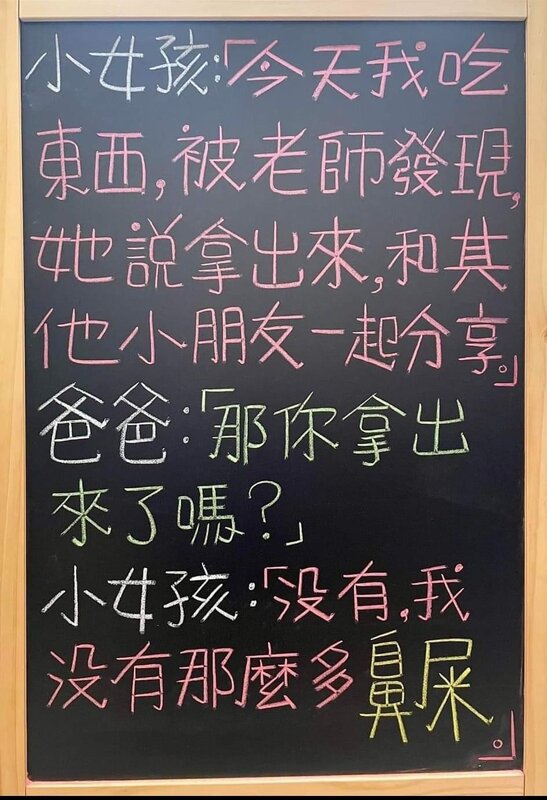 小女孩:「今天我吃
東西,被老師發現,
她說拿出來,和其
他小朋友一起分享。」
爸爸:「那你拿出
來了嗎?」
小女孩:「没有,我
没有那麼多鼻屎。」